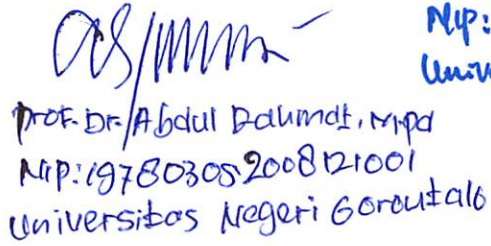 Prof. Dr. Abdul Rahmat, M.Pd
NIP: 197803052008121001
Universitas Negeri Gorontalo
NIP:
Univ